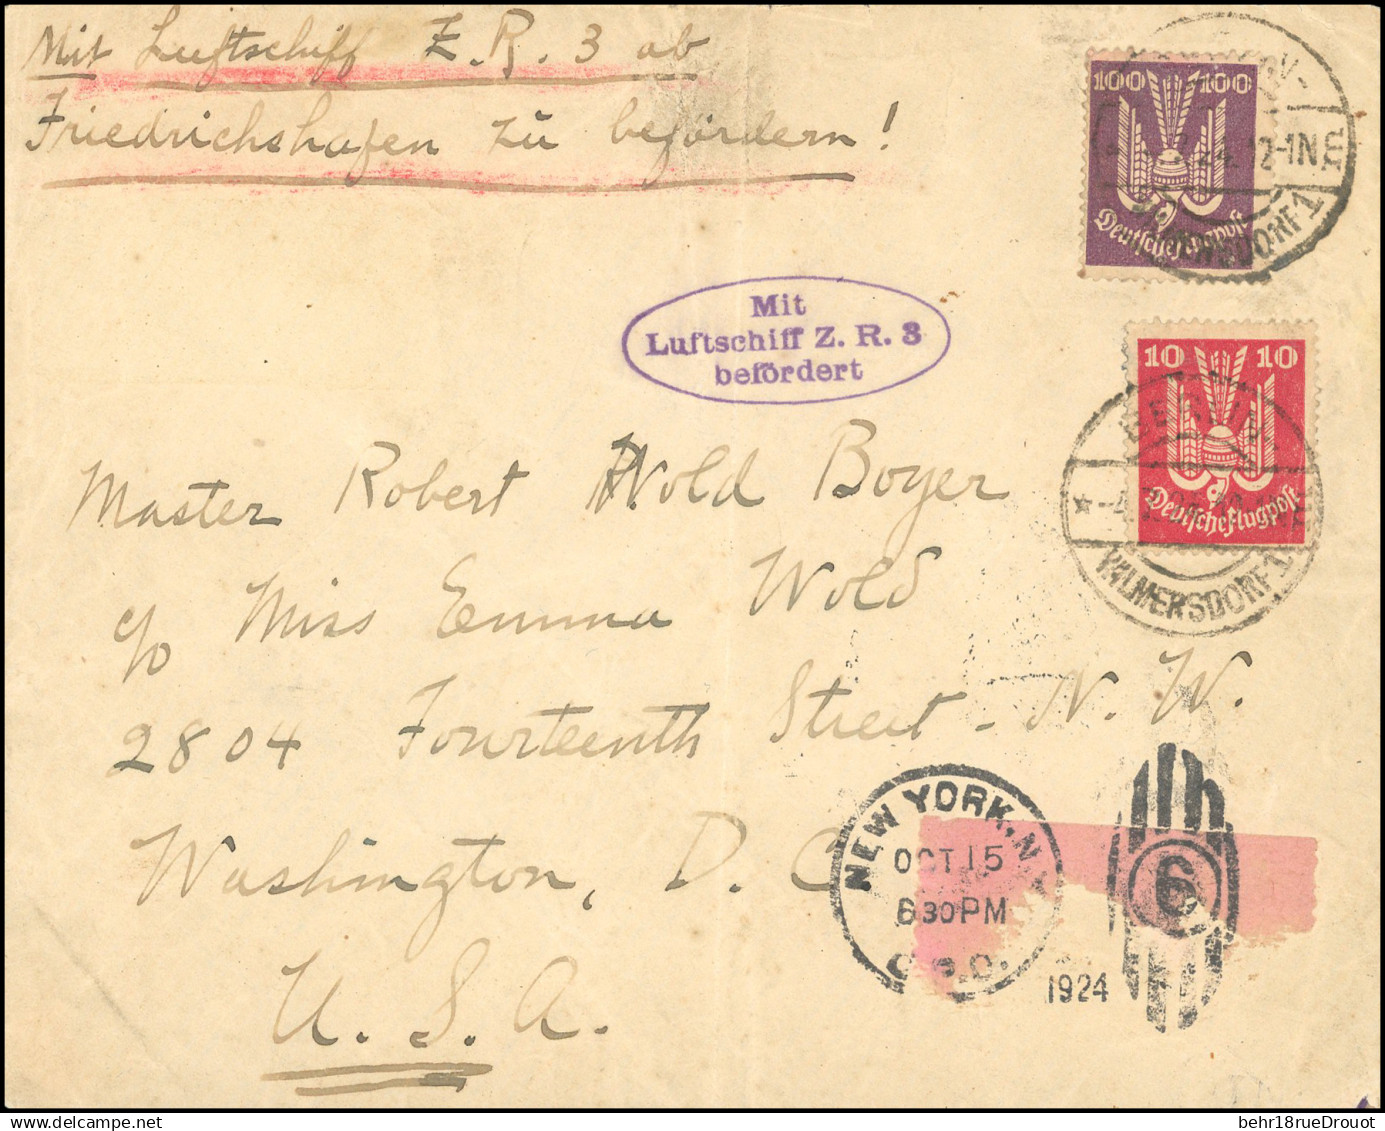 Mit Luftschiff Z. R. 3 ab
Friedrichshafen zu befördern!
100 100
Deutsche Flugpost
12-1N
WILMERSDORF 1
Mit
Luftschiff Z. R. 3
befördert
10 10
Deutsche Flugpost
BERLIN-
WILMERSDORF 1
Master Robert Wold Boyer
c/o Miss Emma Wold
2804 Fourteenth Street - N. W.
Washington, D. C.
U. S. A.
NEW YORK, N.Y.
OCT 15
6 30 PM
G.P.O.
1924
6
behr18rueDrouot